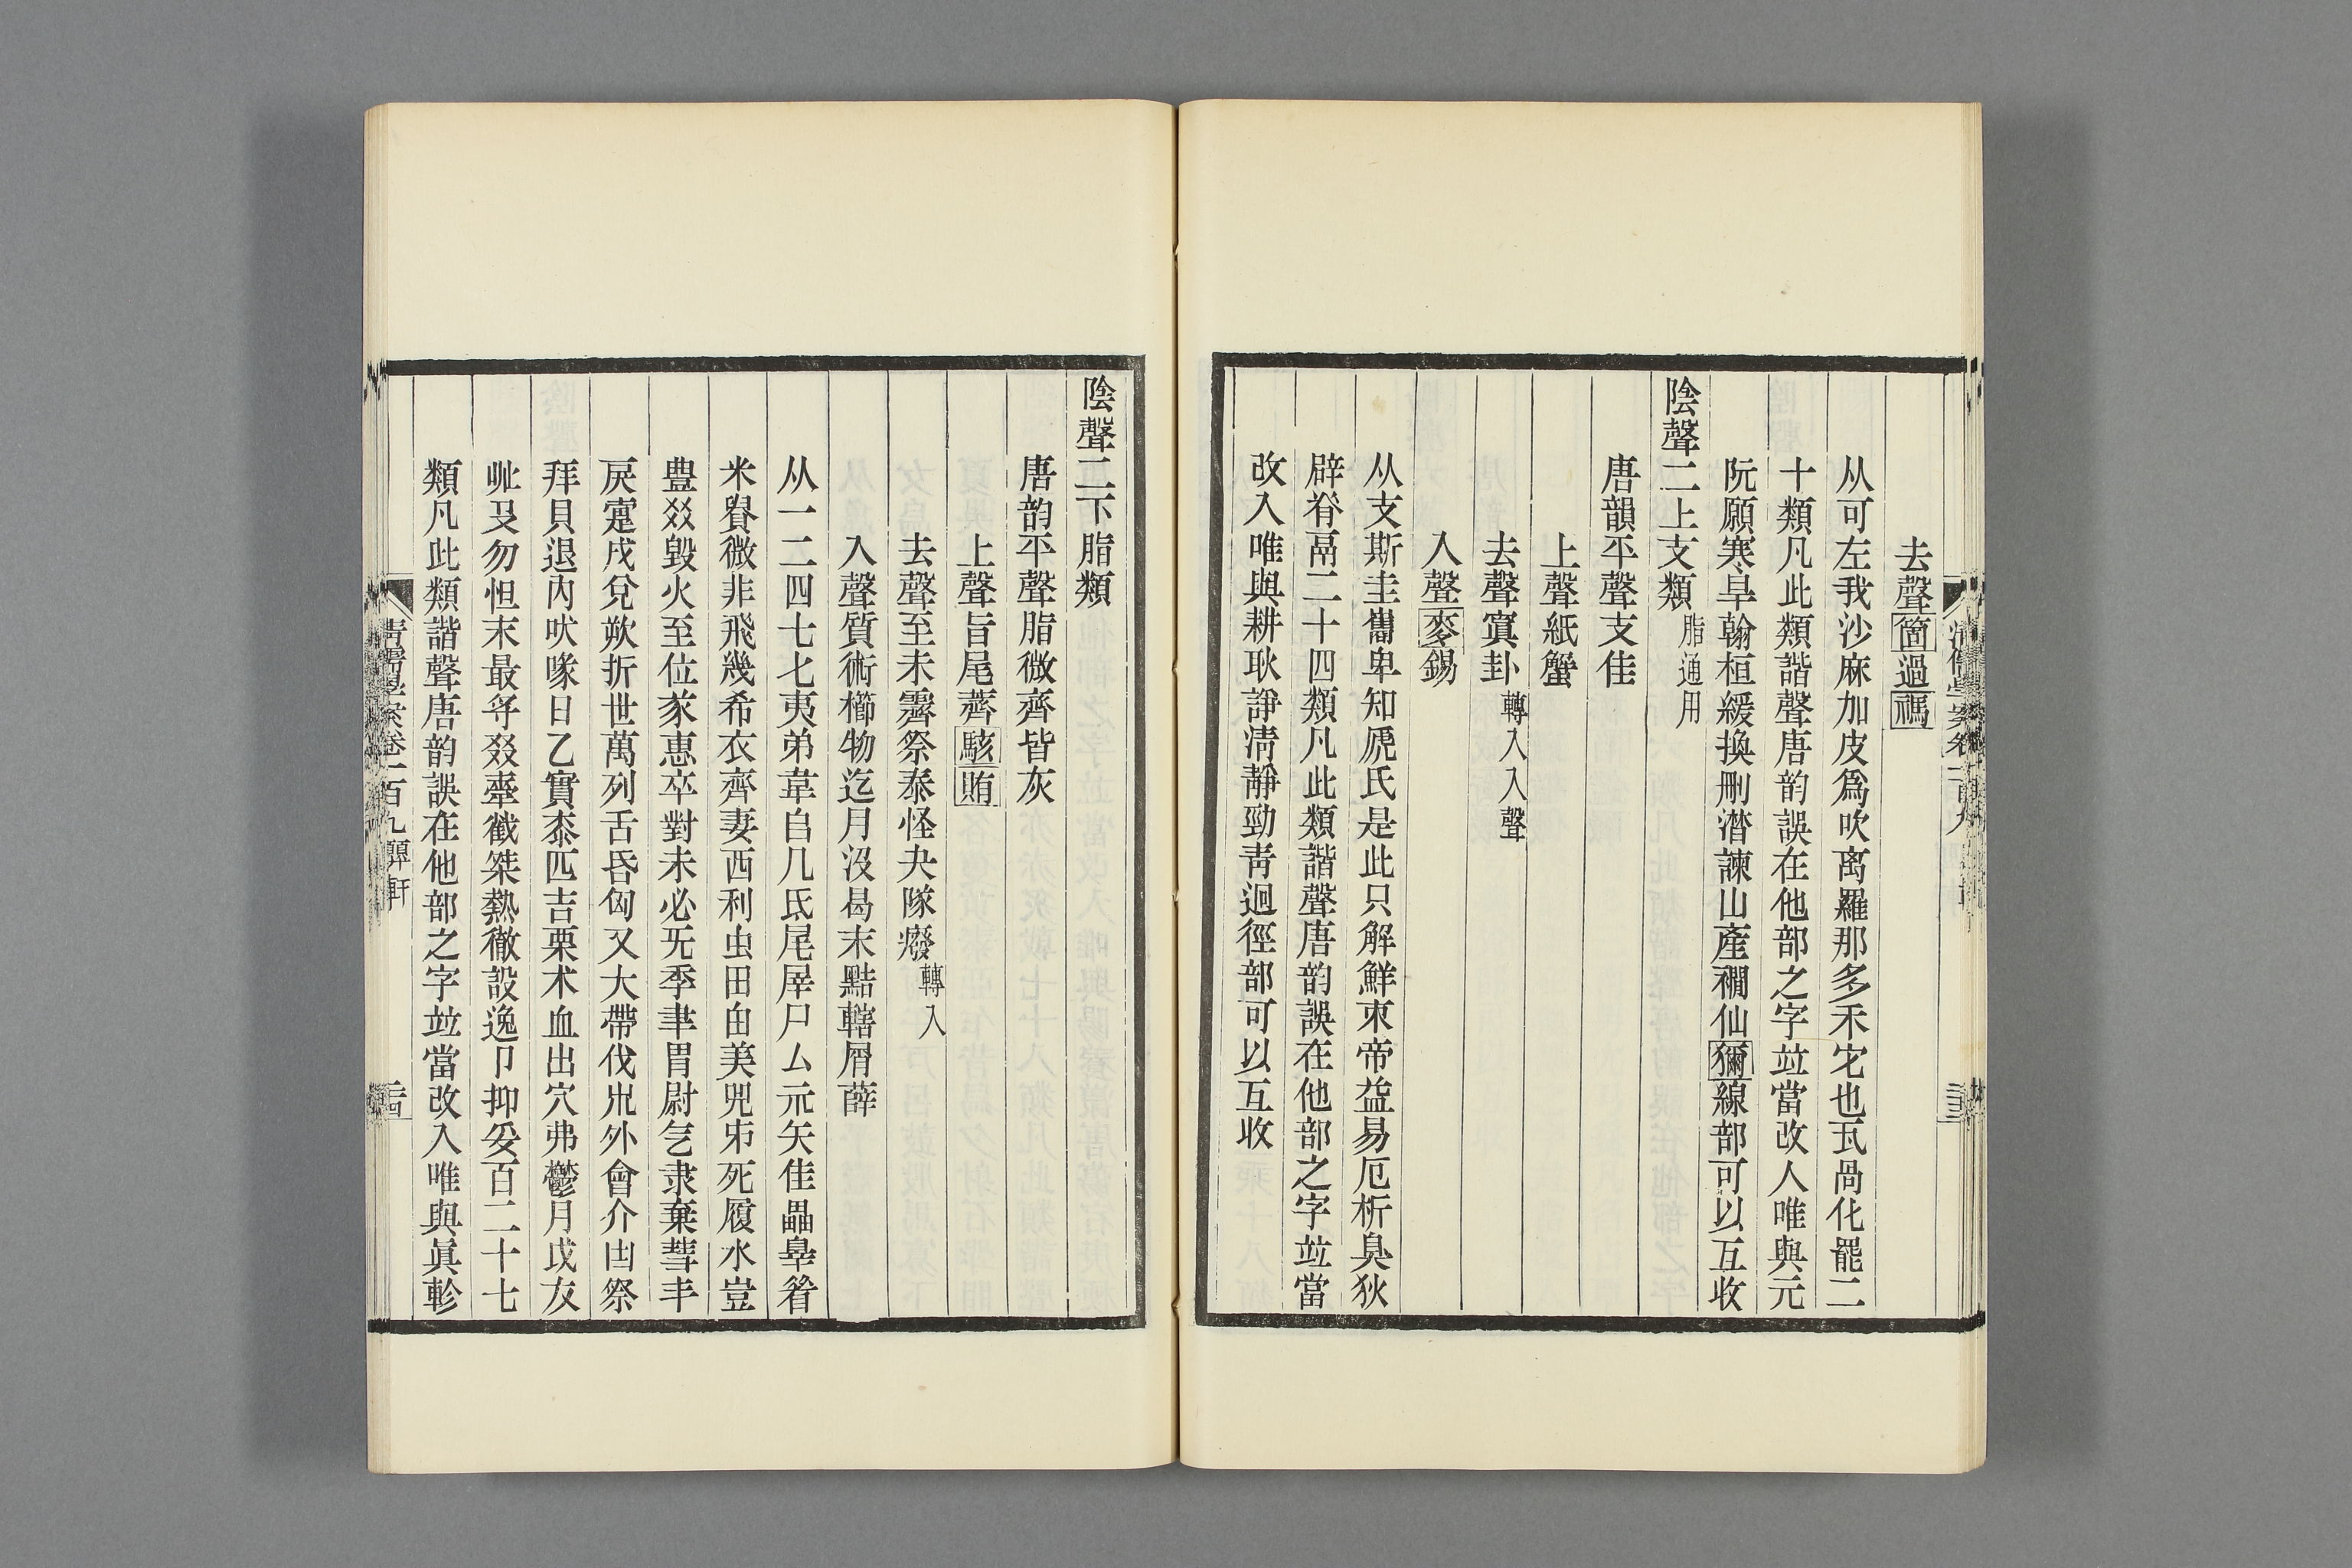 去聲箇過禡
从可左我沙麻加皮爲吹离羅那多禾它也瓦咼化罷二
十類凡此類諧聲唐韵誤在他部之字竝當改人唯與元
阮願寒旱翰桓緩換刪潸諫山產襉仙獮線部可以互收
陰聲二上支類脂通用
唐韻平聲支佳
上聲紙蟹
去聲寘卦轉入入聲
入聲麥錫
从支斯圭巂卑知虒氏是此只解鮮朿帝益易厄析臭狄
辟脊鬲二十四類凡此類諧聲唐韵誤在他部之字竝當
改入唯與耕耿諍淸靜勁靑迥徑部可以互收
陰聲二下脂類
唐韵平聲脂微齊皆灰
上聲旨尾薺駭賄
去聲至未霽祭泰怪夬隊癈轉入
入聲質術櫛物迄月沒曷末黠鎋屑薛
从一二四七七夷弟韋自几氐尾屖尸厶元矢隹畾辠眔
米貴微非飛幾希衣齊妻西利虫田由美兕𠂔死履水豈
豊㸚毀火至位家惠卒對未必旡季聿胃尉乞隶棄彗丯
戾疐戌兌欮折世萬列舌昏匃又大帶伐𣏟外會介甶祭
拜貝退內吠喙日乙實桼匹吉栗朮血出穴弗鬱月戉友
𣥂𠬛勿怛末最寽叕舝截桀熱徹設逸卪抑妥百二十七
類凡此類諧聲唐韵誤在他部之字竝當改入唯與眞軫
清儒學案卷一百九 顨軒